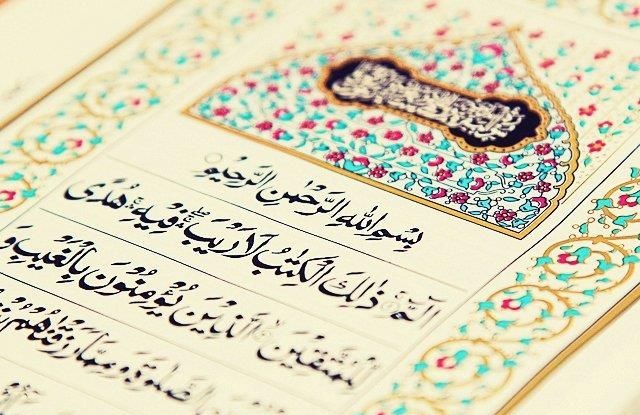 بِسْمِ اللهِ الرَّحْمٰنِ الرَّحِيْمِ
الٓمّٓ ذٰلِكَ الْكِتٰبُ لَا رَيْبَ ۛ فِيْهِ ۛ هُدًى
لِّلْمُتَّقِيْنَ الَّذِيْنَ يُؤْمِنُوْنَ بِالْغَيْبِ وَ
الصَّلٰوةَ وَ مِمَّا رَزَقْنٰهُمْ